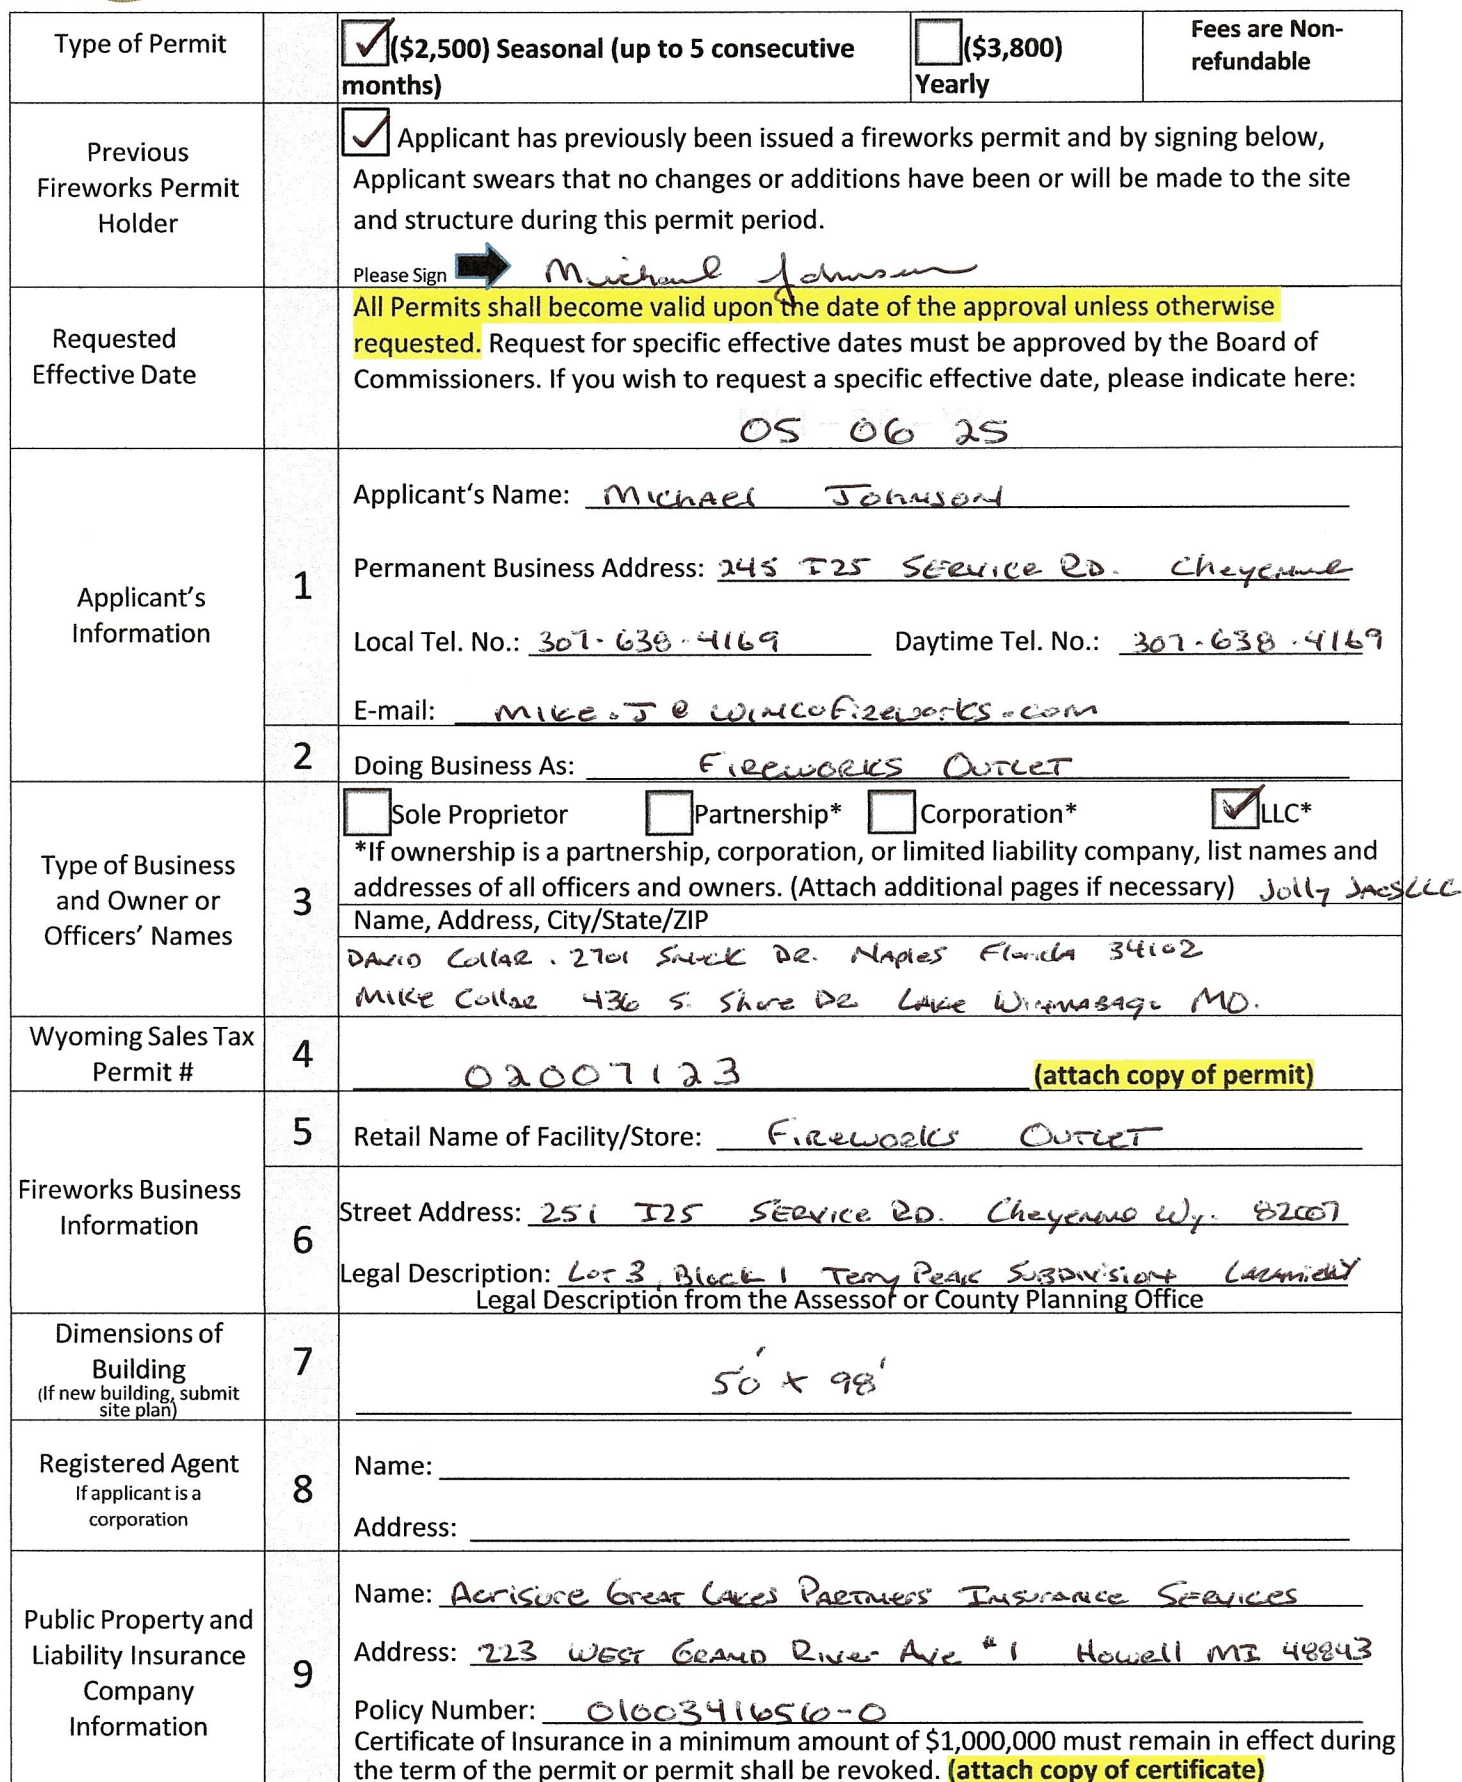 Type of Permit
($2,500) Seasonal (up to 5 consecutive months)
($3,800) Yearly
Fees are Non-refundable
Previous Fireworks Permit Holder
Applicant has previously been issued a fireworks permit and by signing below,
Applicant swears that no changes or additions have been or will be made to the site
and structure during this permit period.
Please Sign Michael Johnson
Requested Effective Date
All Permits shall become valid upon the date of the approval unless otherwise
requested. Request for specific effective dates must be approved by the Board of
Commissioners. If you wish to request a specific effective date, please indicate here:
05 06 25
Applicant's Information
1
Applicant's Name: Michael Johnson
Permanent Business Address: 245 I25 Service RD. Cheyenne
Local Tel. No.: 307-638-4169 Daytime Tel. No.: 307-638-4169
E-mail: Mike.J@wincofireworks.com
2
Doing Business As: Fireworks Outlet
Type of Business and Owner or Officers' Names
3
Sole Proprietor Partnership* Corporation* LLC*
*If ownership is a partnership, corporation, or limited liability company, list names and
addresses of all officers and owners. (Attach additional pages if necessary) Jolly Jacs LLC
Name, Address, City/State/ZIP
David Collar. 2701 DR. Naples Florida 34102
Mike Collar 436 S. Shore DR Lake Winnabago MO.
Wyoming Sales Tax Permit #
4
02007123 (attach copy of permit)
Fireworks Business Information
5
Retail Name of Facility/Store: Fireworks Outlet
6
Street Address: 251 I25 Service RD. Cheyenne Wy. 82007
Legal Description: Lot 3, Block 1 Terry Peak Subdivision
Legal Description from the Assessor or County Planning Office
Dimensions of Building
(If new building, submit site plan)
7
50' x 98'
Registered Agent
If applicant is a corporation
8
Name:
Address:
Public Property and Liability Insurance Company Information
9
Name: Acrisure Great Lakes Partners Insurance Services
Address: 223 West Grand River Ave #1 Howell MI 48843
Policy Number: 0100341656-0
Certificate of Insurance in a minimum amount of $1,000,000 must remain in effect during
the term of the permit or permit shall be revoked. (attach copy of certificate)